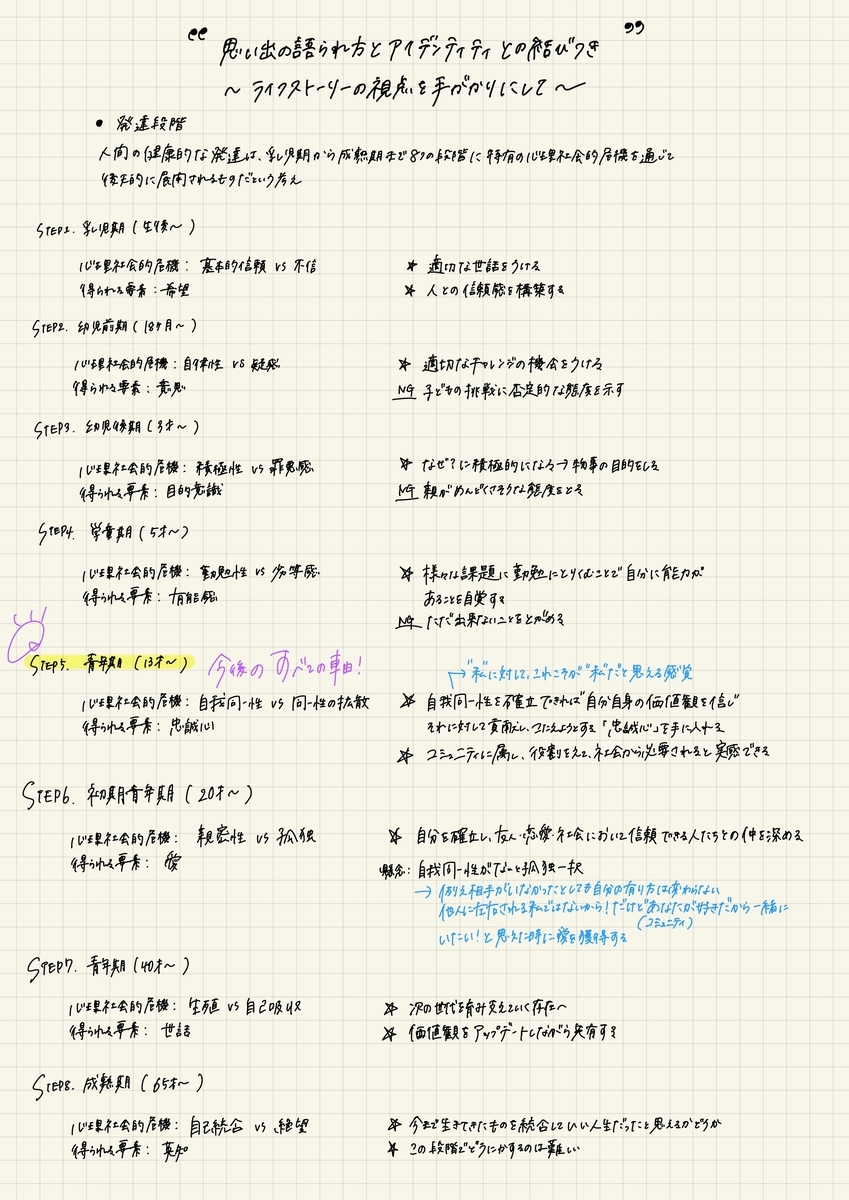 “ 思い出の語られ方とアイデンティティとの結びつき ”
～ ライフストーリーの視点を手がかりにして ～
• 発達段階
人間の健康的な発達は、乳児期から成熟期まで8つの段階に特有の心理社会的危機を通じて
後天的に展開されるものだという考え
STEP1. 乳児期 (生後～)
心理社会的危機: 基本的信頼 vs 不信
得られる要素: 希望
☆ 適切な世話をうける
☆ 人との信頼感を構築する
STEP2. 幼児前期 (18ヶ月～)
心理社会的危機: 自律性 vs 疑惑
得られる要素: 意思
☆ 適切なチャレンジの機会をうける
NG 子どもの挑戦に否定的な態度を示す
STEP3. 幼児後期 (3才～)
心理社会的危機: 積極性 vs 罪悪感
得られる要素: 目的意識
☆ なぜ?に積極的になる→物事の目的をしる
NG 親がめんどくさそうな態度をとる
STEP4. 学童期 (5才～)
心理社会的危機: 勤勉性 vs 劣等感
得られる要素: 有能感
☆ 様々な課題に勤勉にとりくむことで自分に能力が
あることを自覚する
NG ただ出来ないことをとがめる
STEP5. 青年期 (13才～) 今後のすべての軸!
心理社会的危機: 自我同一性 vs 同一性の拡散
得られる要素: 忠誠心
→"私"に対して、これこそが"私"だと思える感覚
☆ 自我同一性を確立できれば自分自身の価値観を信じ
それに対して貢献し、つたえようとする「忠誠心」を手に入れる
☆ コミュニティに属し、役割をえて、社会から必要されると実感できる
STEP6. 初期青年期 (20才～)
心理社会的危機: 親密性 vs 孤独
得られる要素: 愛
☆ 自分を確立し、友人・恋愛・社会において信頼できる人たちとの仲を深める
懸念: 自我同一性がないと孤独一択
→ 例え相手がいなかったとしても自分の有り方は変わらない
他人に左右される私ではないから!だけどあなたが好きだから一緒に
(コミュニティ)
いたい!と思えた時に愛を獲得する
STEP7. 青年期 (40才～)
心理社会的危機: 生殖 vs 自己吸収
得られる要素: 世話
☆ 次の世代を育み支えていく存在へ
☆ 価値観をアップデートしながら共有する
STEP8. 成熟期 (65才～)
心理社会的危機: 自己統合 vs 絶望
得られる要素: 英知
☆ 今まで生きてきたものを統合していい人生だったと思えるかどうか
☆ この段階でどうにかするのは難しい